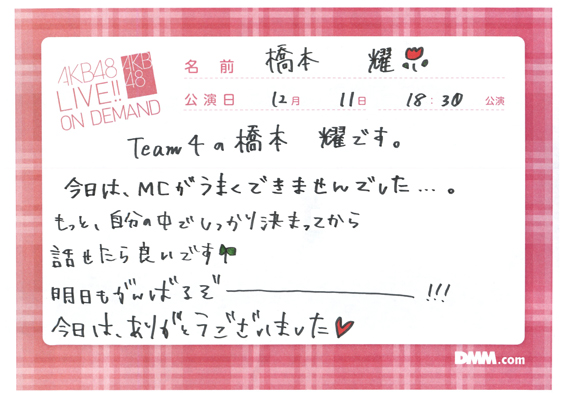 AKB48
LIVE!!
ON DEMAND
AKB
48
名前 橋本 耀
公演日 12月 11日 18:30 公演
Team4の橋本 耀です。
今日は、MCがうまくできませんでした…。
もっと、自分の中でしっかり決まってから
話せたら良いです
明日もがんばるぞ――――!!!
今日は、ありがとうございました
DMM.com